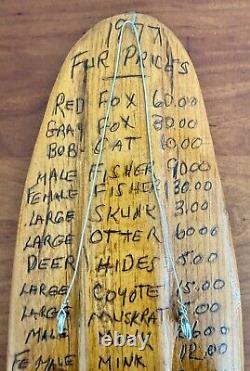 1977
FUR PRICES
RED FOX 60.00
GRAY FOX 30.00
BOB CAT 10.00
MALE FISHER 90.00
FEMALE FISHER 130.00
LARGE SKUNK 3.00
LARGE OTTER 60.00
DEER HIDES 5.00
LARGE COYOTE 5.00
LARGE MUSKRAT 5.00
MALE
FEMALE MINK 12.00